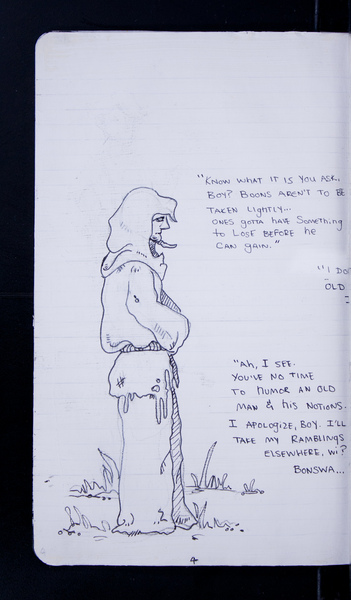 "Know what it is you ask,
boy? Boons aren't to be
taken lightly...
ones gotta have something
to lose before he
can gain."
"I do
old
"Ah, I see.
You've no time
to humor an old
man & his notions.
I apologize, boy. I'll
take my ramblings
elsewhere, wi?
Bonswa...
4